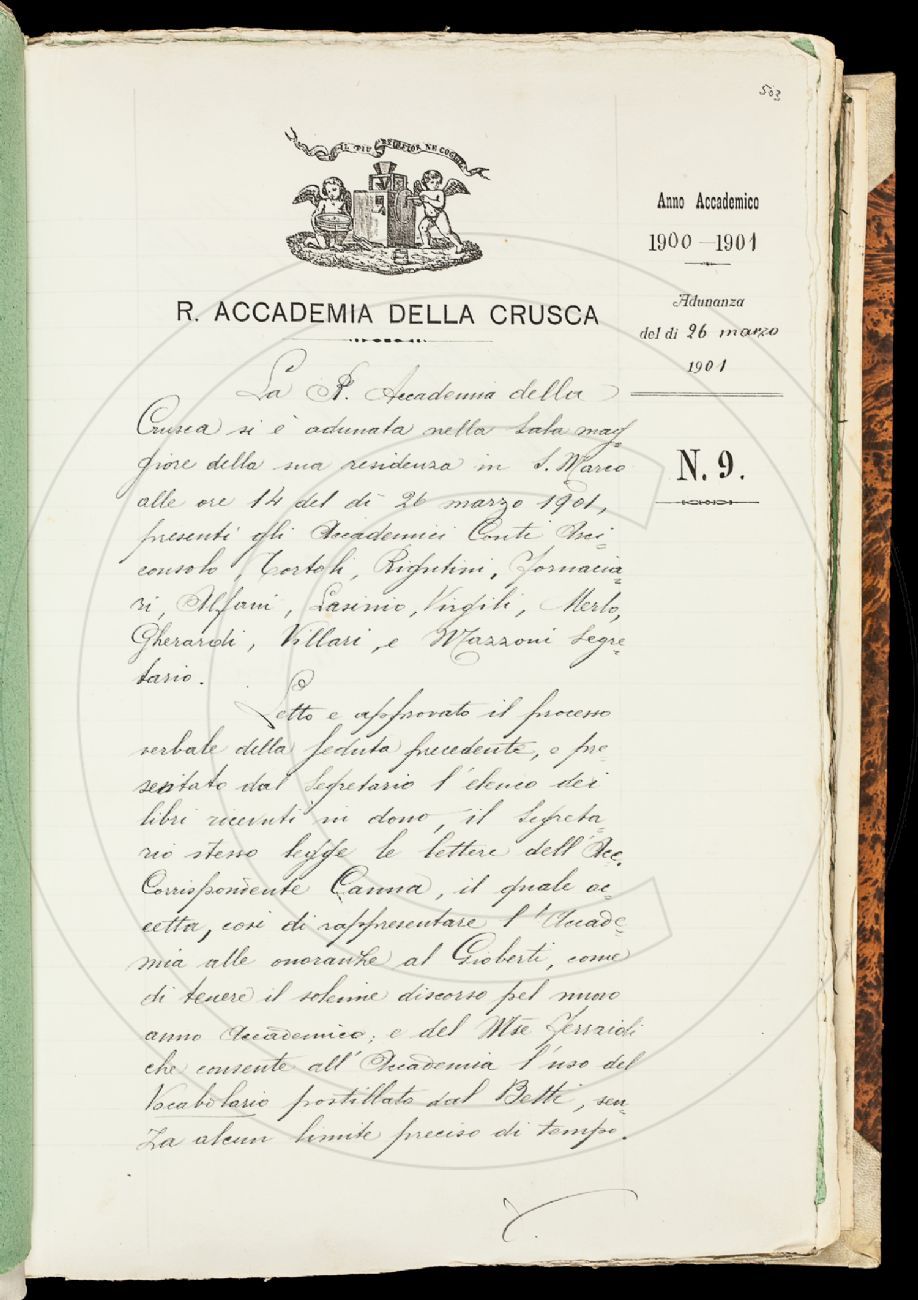 503
IL PIU BEL FIOR NE COGLIE
R. ACCADEMIA DELLA CRUSCA
Anno Accademico
1900-1901
Adunanza
del dì 26 marzo
1901
N. 9.
La R. Accademia della
Crusca si è adunata nella Sala mag=
giore della sua residenza in S. Marco
alle ore 14 del dì 26 marzo 1901,
presenti gli Accademici Conti Arci=
consolo, Tortoli, Rigutini, Fornacia=
ri, Alfani, Lasinio, Virgili, Merlo,
Gherardi, Villari, e Mazzoni Segre=
tario.
Letto e approvato il processo
verbale della seduta precedente, e pre=
sentato dal Segretario l'elenco dei
libri ricevuti in dono, il Segreta=
rio stesso legge le lettere dell'Acc.
Corrispondente Canna, il quale ac=
cetta, così di rappresentare l'Accade=
mia alle onoranze al Gioberti, come
di tenere il solenne discorso pel nuovo
anno Accademico; e del Mse Ferraioli
che consente all'Accademia l'uso del
Vocabolario postillato dal Betti, sen=
za alcun limite preciso di tempo.